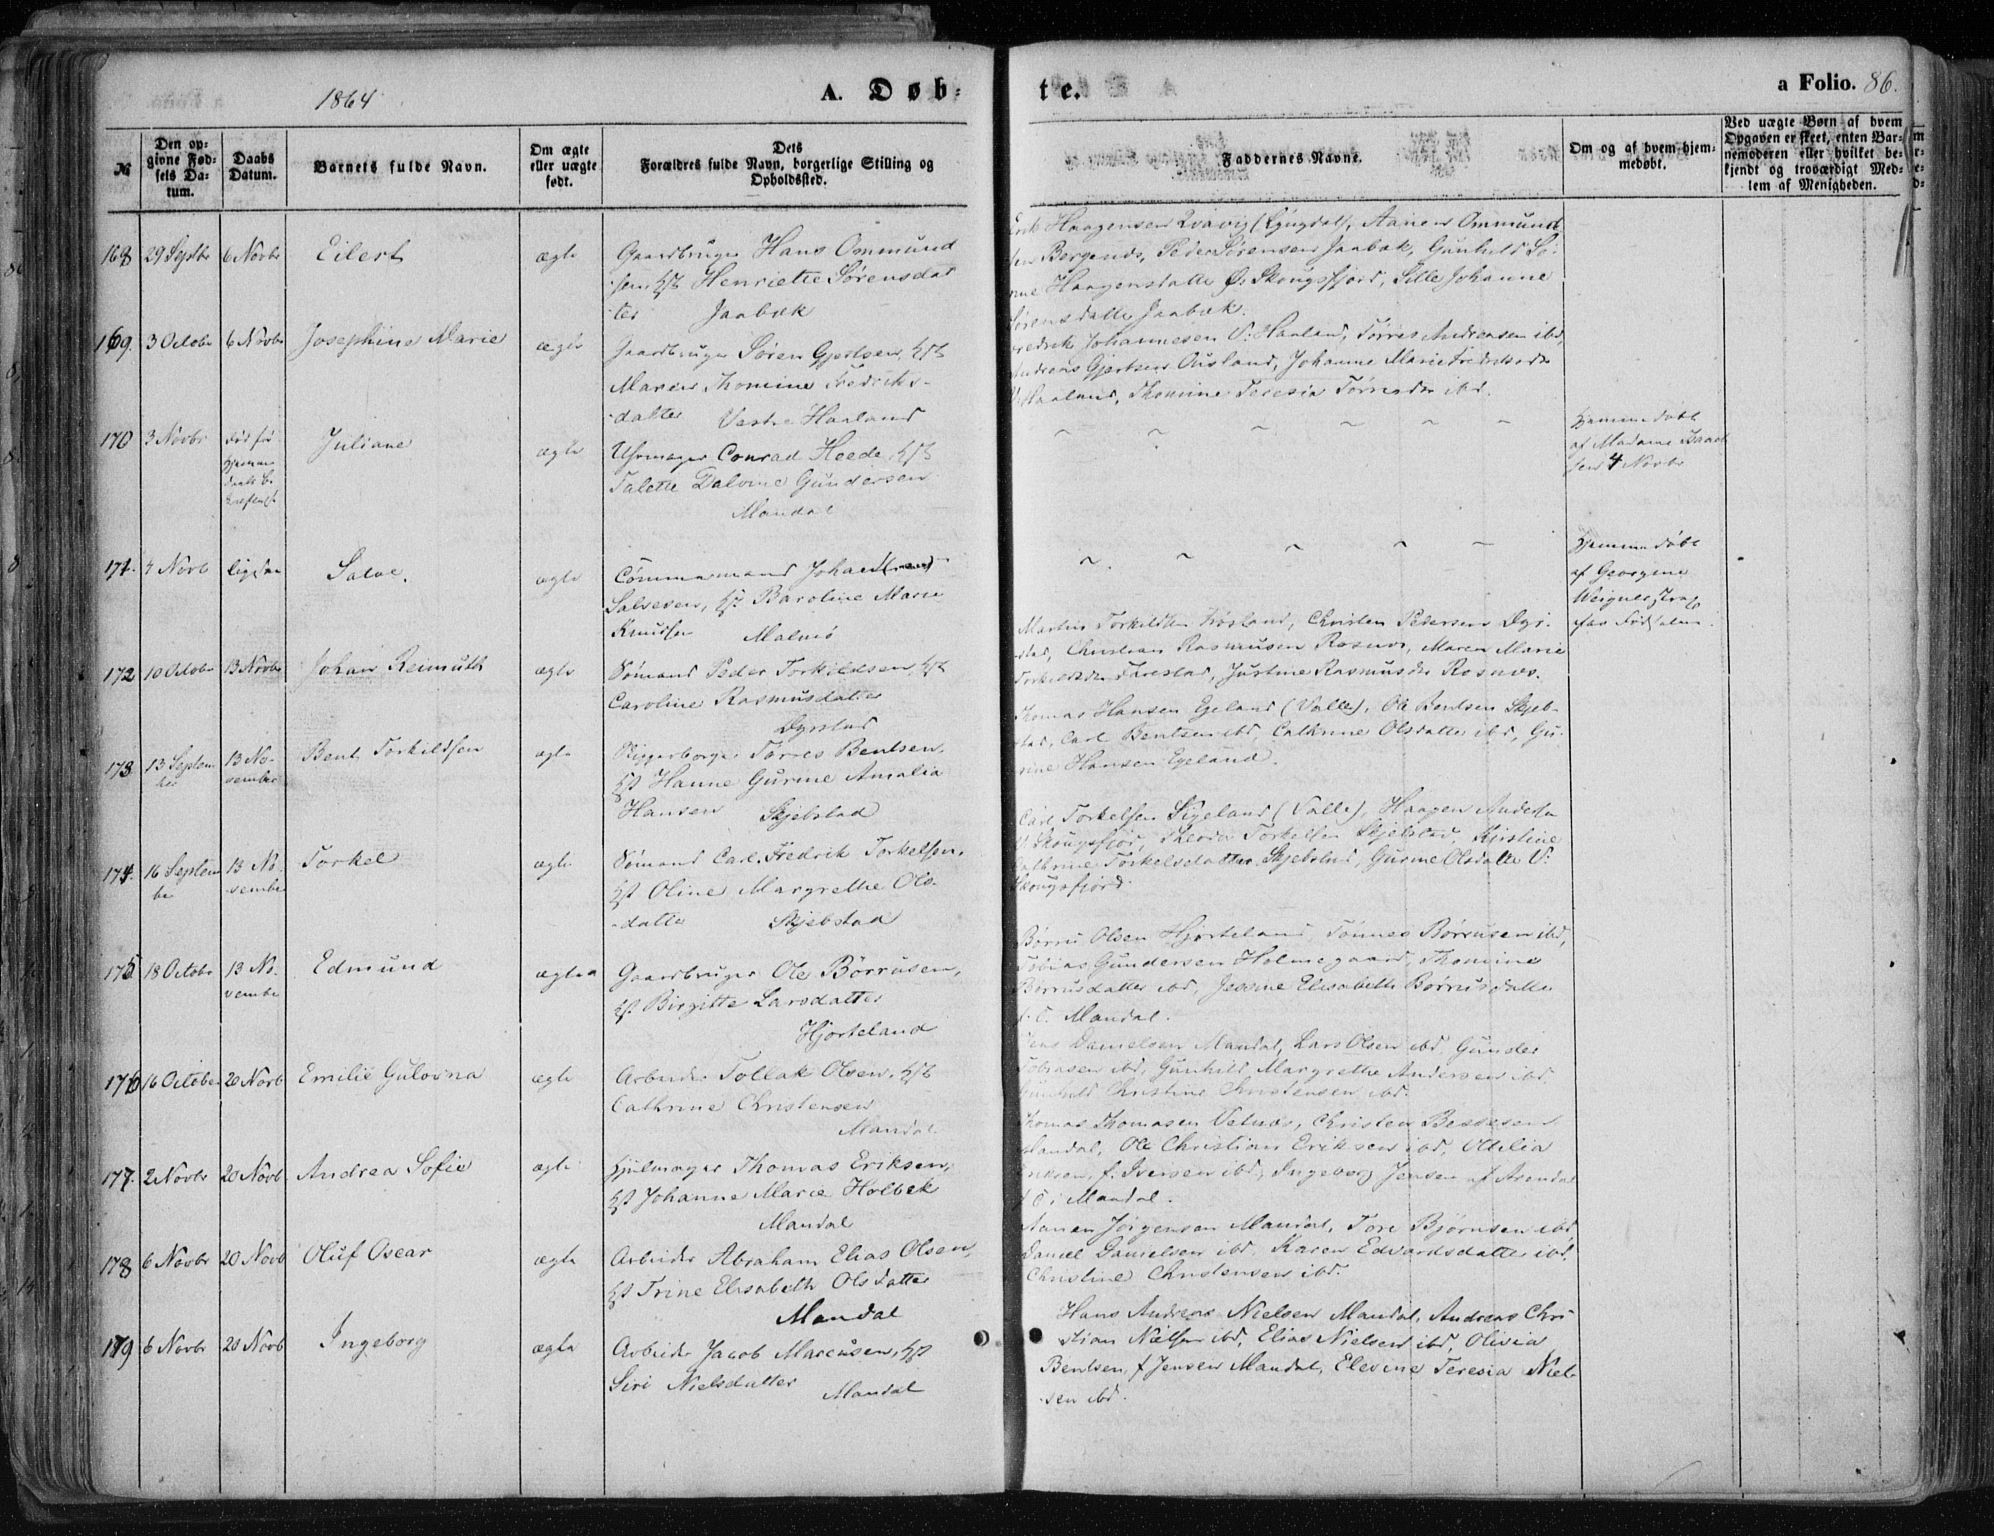 1864
A. Døb-
te.
a Folio. 86.
№
Den op-
givne Fød-
sels Da-
tum.
Daabs
Datum.
Barnets fulde Navn.
Om ægte
eller uægte
født.
Dets
Forældres fulde Navn, borgerlige Stilling og
Opholdssted.
Faddernes Navne.
Om og af hvem hjem-
medøbt.
Ved uægte Børn af hvem
Opgaven er skeet, enten Bar-
nemoderen eller hvilket be-
kjendt og troværdigt Med-
lem af Menigheden.
168 29 Septbr 6 Novbr Eilert ægte Gaardbruger Hans Ommund
sen, Henriette Sørensdat
ter Jaabæk
Haagensen (Lyngdal), Aanen Ommund
Bergends, Peder Sørensen Jaabæk, Gunhild
Haagensdatte Ø. Skougsfjord, Sille Johanne
Sørensdatte Jaabæk.
169. 3 Octobr 6 Novbr Josephine Marie ægte Gaardbruger Søren Gjertsen,
Maren Thomine Fredriks-
datter Vestre Haaland
Johannesen V. Haaland, Tørres Andreasen ibd,
Andreas Gjertsen Ousland, Johanne Marie Fredriksdr
V. Haaland, Thomine Teresia Tørresdr ibd.
170 3 Novbr Død før
Hjemme
daab be
kræftiget
Juliane ægte Uhrmager Conrad Heede,
Talette Gundersen
Mandal
Hjemmedøbt
af Madame Isaak
sen 4 Novbr
171. 4 Novb ligesaa Salve. ægte Johan
Salvesen, Baroline Marie
Knudsen Malmø
Hjemmedøbt
af Georgine
strax
efter Fødselen.
172 10 Octobr 13 Novbr Johan Reimuth ægte Sømand Peder Torkildsen,
Caroline Rasmusdatter
Dyrstad
Martin Torkildsen Christen Pedersen Dyr-
stad, Christian Rasmusen Rosnæs, Maren Marie
Justine Rasmusdr Rosnæs.
173 13 Septem
ber
13 No-
vember
Bent Torkildsen ægte Tørres Bentsen,
Hanne Gurine Amalia
Hansen Skjebstad
Thomas Hansen Egeland (Valle), Ole Bentsen Skjeb-
stad, Carl Bentsen ibd, Cathrine Olsdatter ibd, Gu-
rine Hansen Egeland.
174. 16 Septem
ber
13 No-
vember
Torkel ægte Sømand Carl Fredrik Torkelsen,
Oline Margrethe Ols-
datter Skjebstad
Carl Torkelsen Sigeland (Valle), Haagen Andersen
V. Skougsfjor, Theodor Torkelsen Skjebstad, Kjirstine
Cathrine Torkelsdatter Skjebstad, Gurine Olsdatte V.
Skougsfjord.
175 18 Octobr 13 No-
vember
Edmund ægte Gaardbruger Ole Børrusen,
Birgitte Larsdatter
Hjorteland
Børru Olsen Hjorteland, Tønnes Børrusen ibd,
Tobias Gundersen Holmegaard, Thomine
Børrusdatter ibd, Jessine Elisabeth Børrusdatte
Mandal.
176 16 October 20 Novb Emilie Gulovna ægte Arbeider Tollak Olsen,
Cathrine Christensen
Mandal
Jens Danielsen Mandal, Lars Olsen ibd, Gunder
Tobiasen ibd, Gunhild Margrethe Andersen ibd,
Gunhild Kristine Christensen ibd.
177. 2 Novbr 20 Novb. Andrea Sofie ægte Hjulmager Thomas Eriksen,
Johanne Marie Holbek
Mandal
Thomas Thomasen Christen
Mandal, Ole Christian Eriksen ibd, Otilia
Eriksen, f. Iversen ibd, Ingeborg Jensen af Arendal
i Mandal.
178 6 Novbr 20 Novb Oluf Oscar ægte Arbeider Abraham Elias Olsen,
Trine Elisabeth Olsdatter
Mandal
Aanen Jørgensen Mandal, Tore Bjørnsen ibd,
Daniel Danielsen ibd, Karen Edvardsdatter ibd,
Christine Christensen ibd.
179 6 Novbr 20 Novb Ingeborg ægte Arbeider Jacob Marcusen,
Siri Nielsdatter Mandal
Hans Andreas Nielsen Mandal, Andreas Chri-
stian Nielsen ibd, Elias Nielsen ibd, Olivia
Bentsen, f. Jensen Mandal, Elevine Teresia Niel-
sen ibd.